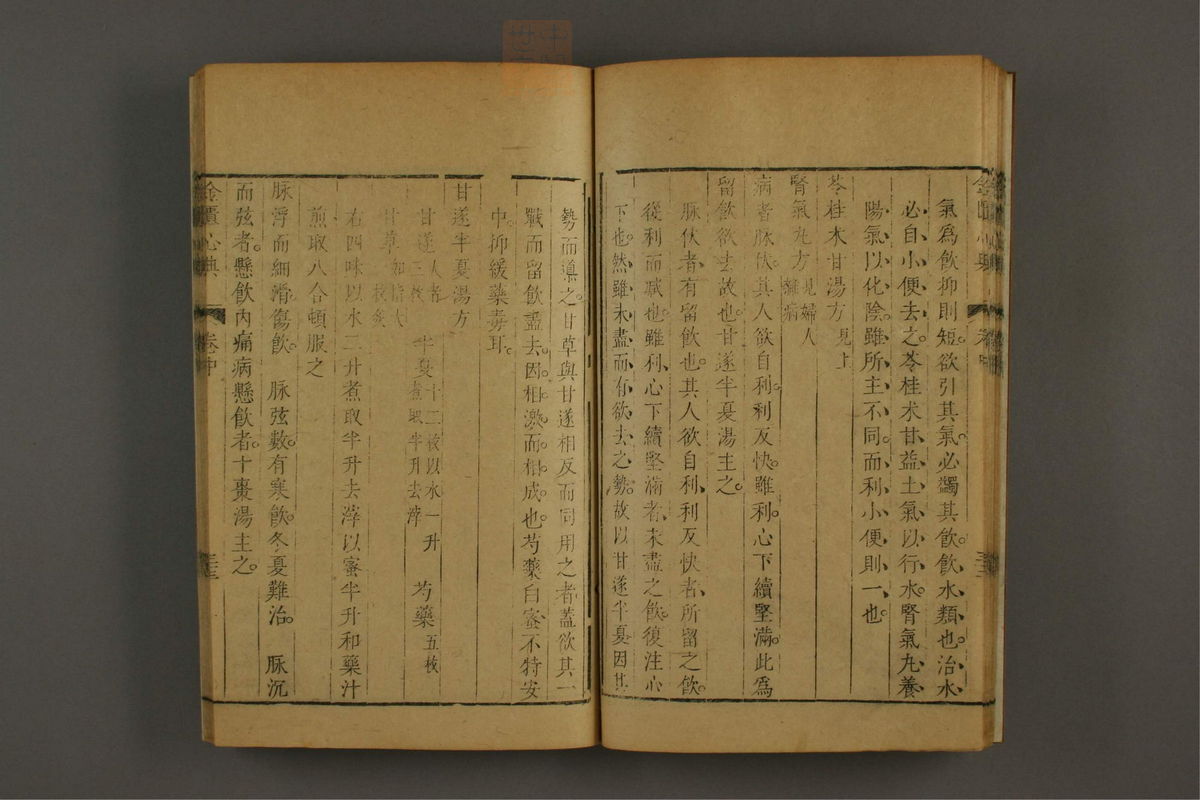 氣爲飲抑則短。欲引其氣。必蠲其飲。飲水類也。治水
必自小便去之。苓桂朮甘。益土氣以行水。腎氣丸養
陽氣以化陰。雖所主不同。而利小便則一也。
苓桂朮甘湯方見上
腎氣丸方見婦人雜病
病者脉伏。其人欲自利。利反快。雖利。心下續堅滿。此爲
留飲欲去故也。甘遂半夏湯主之。
脉伏者有留飲也。其人欲自利。利反快者。所留之飲。
從利而減也。雖利。心下續堅滿者。未盡之飲。復注心
下也。然雖未盡而有欲去之勢。故以甘遂半夏因其
勢而導之。甘草與甘遂相反。而同用之者。蓋欲其一
戰而留飲盡去。因相激而相成也。芍藥白蜜。不特安
中。抑緩藥毒耳。
甘遂半夏湯方
甘遂大者三枚 半夏十二枚以水一升煮取半升去滓 芍藥五枚
甘草如指大一枚炙
右四味以水二升煮取半升去滓以蜜半升和藥汁
煎取八合頓服之
脉浮而細滑。傷飲。 脉弦數。有寒飲。冬夏難治。 脉沉
而弦者。懸飲內痛。病懸飲者。十棗湯主之。
金匱心典
卷中
三十三